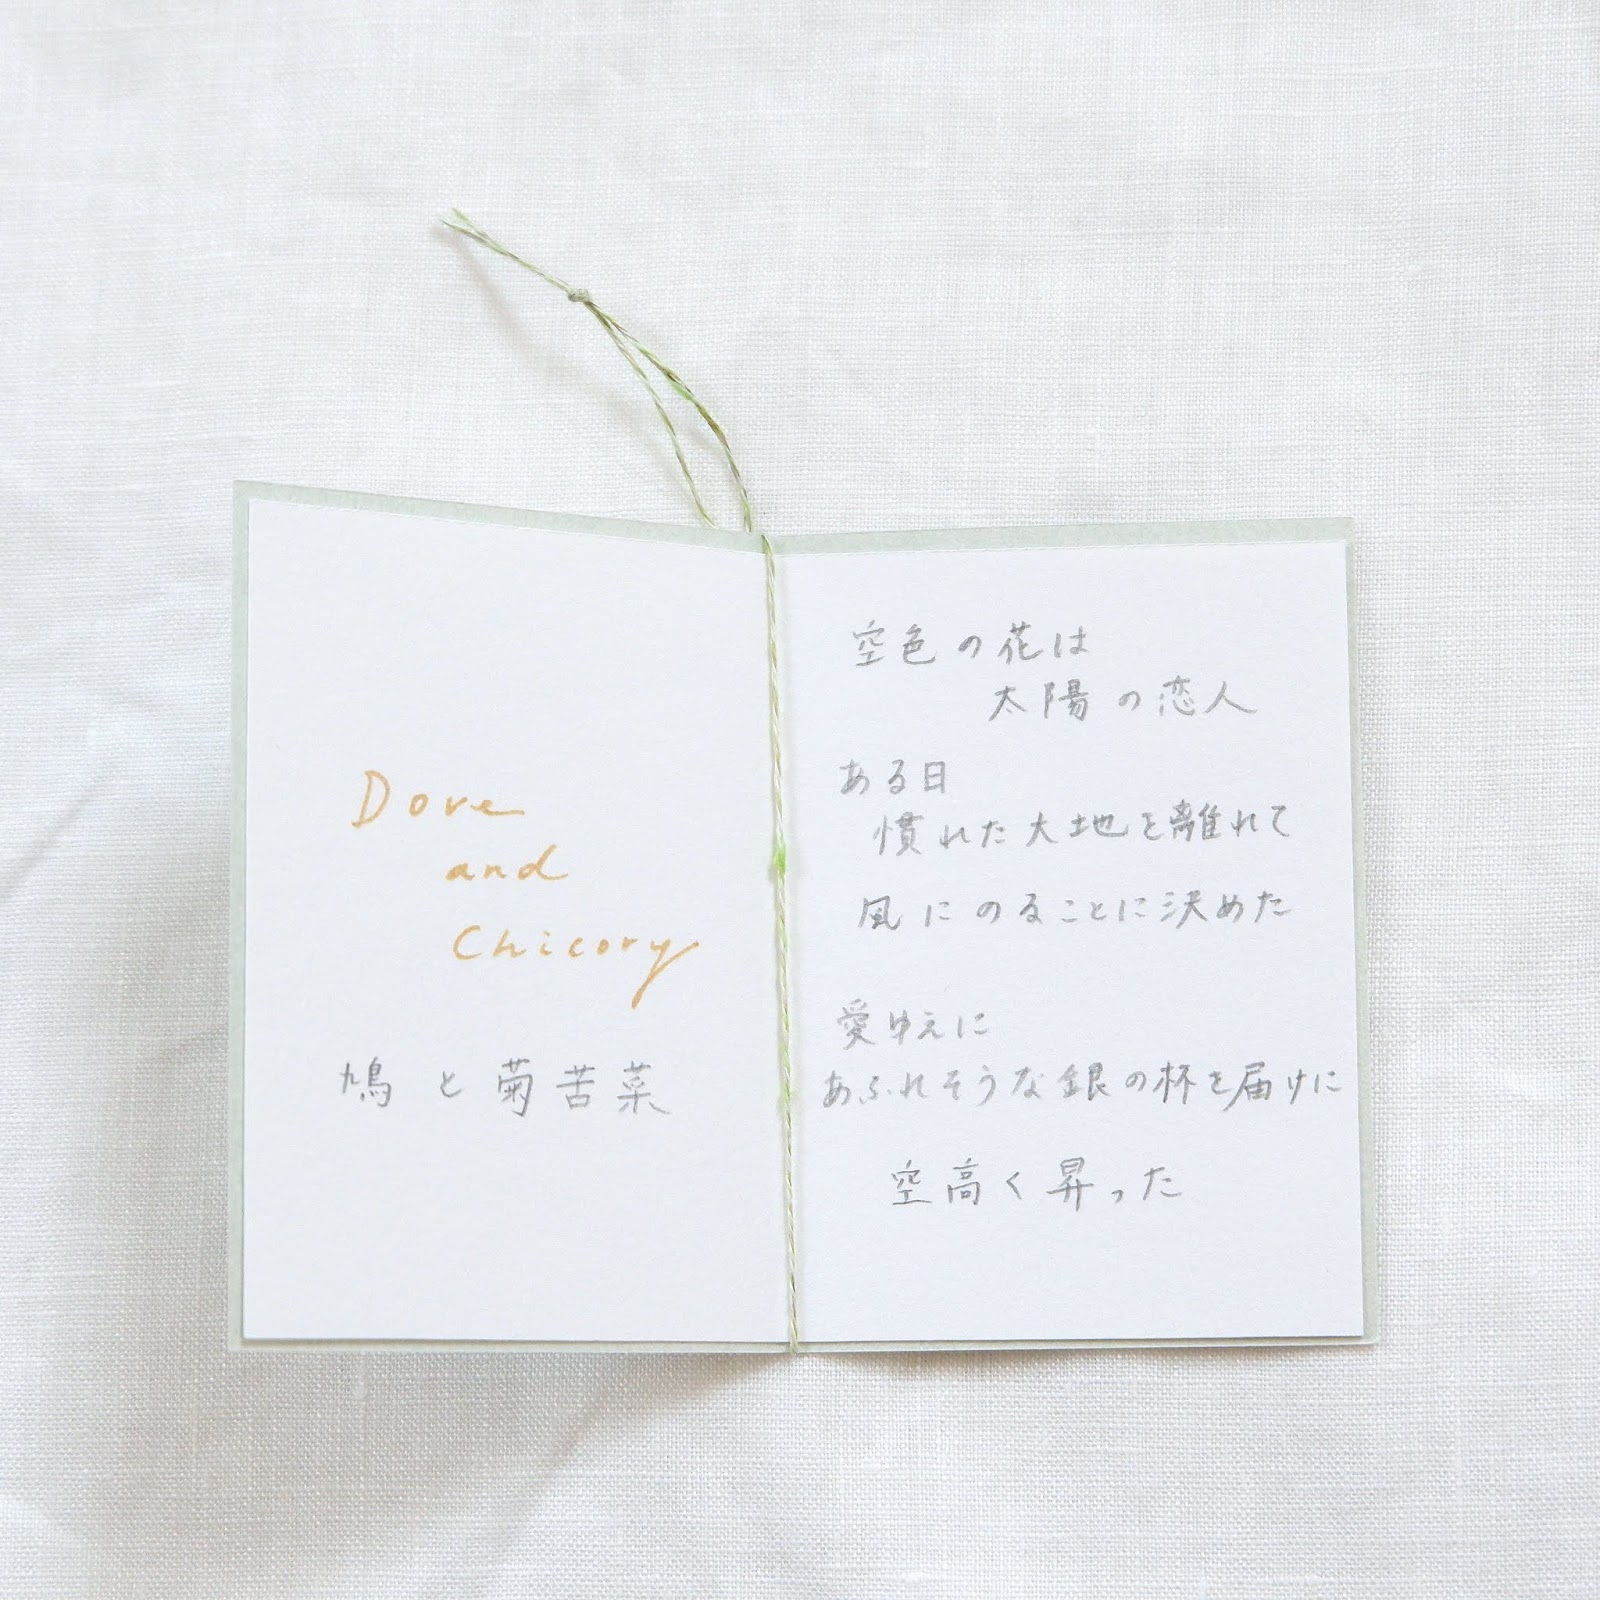 Dove
and
Chicory
鳩と菊苦菜
空色の花は
太陽の恋人
ある日
慣れた大地を離れて
風にのることに決めた
愛ゆえに
あふれそうな銀の杯を届けに
空高く昇った